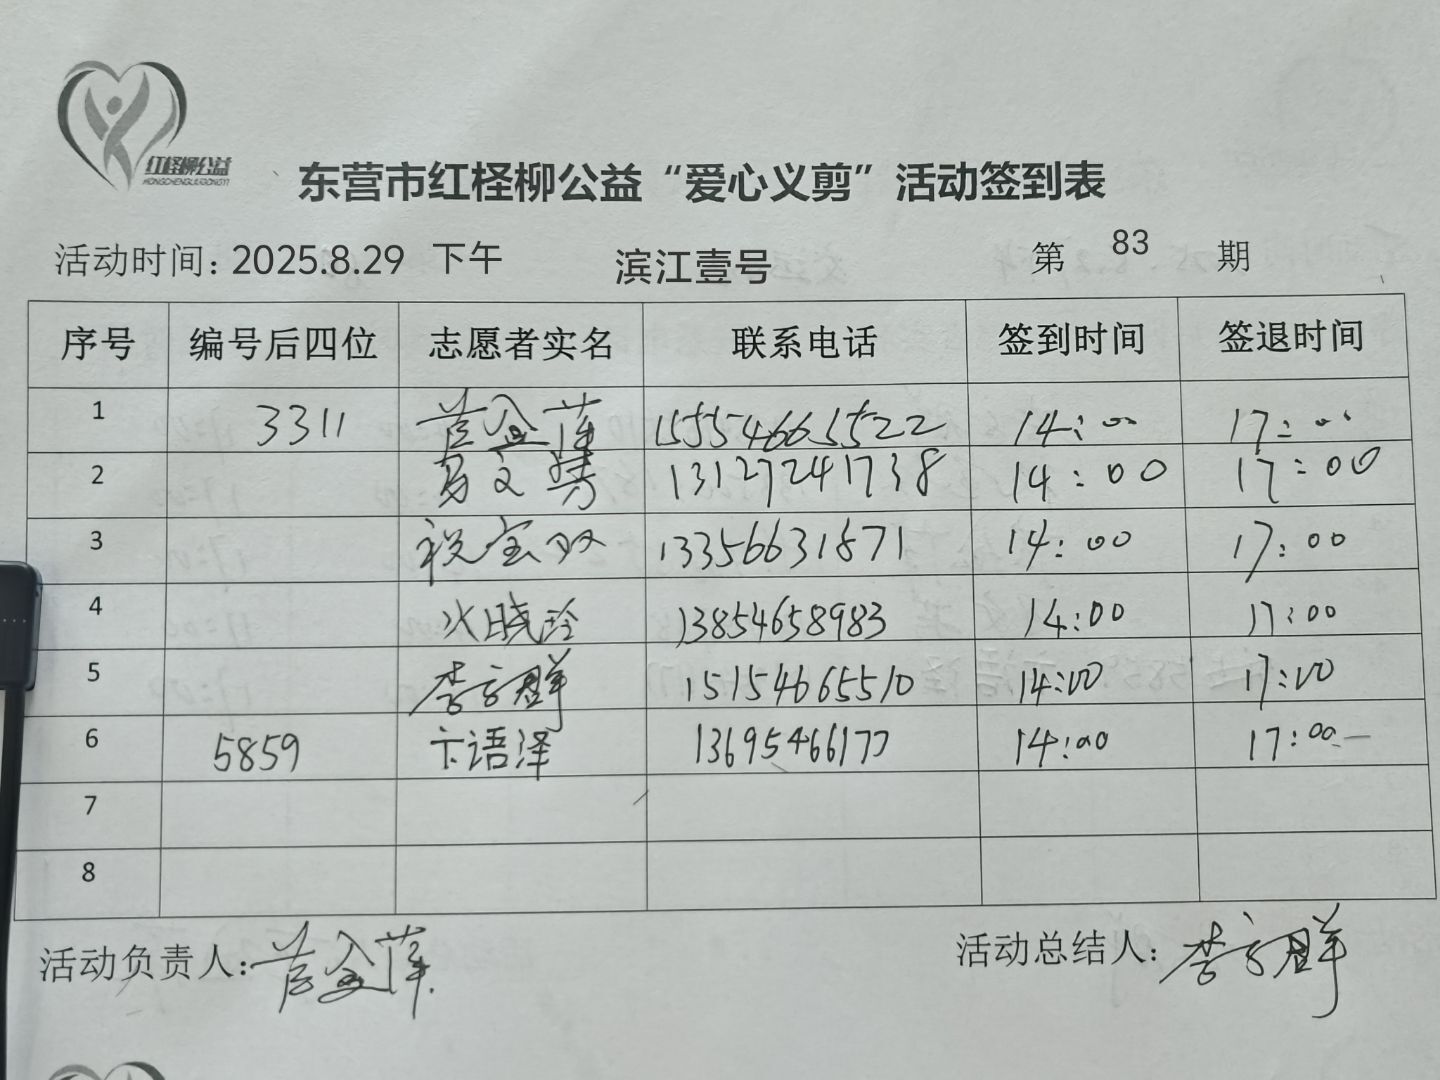 红柽柳公益
HONGCHENGLIUGONGYI
东营市红柽柳公益“爱心义剪”活动签到表
活动时间：2025.8.29 下午 滨江壹号 第 83 期
序号 编号后四位 志愿者实名 联系电话 签到时间 签退时间
1 3311 15554665522 14:00 17:00
2 13127241738 14:00 17:00
3 祝宝双 13356631871 14:00 17:00
4 晓玲 13854658983 14:00 17:00
5 李群 15154665510 14:00 17:00
6 5859 卞语泽 13695466177 14:00 17:00
7
8
活动负责人： 活动总结人：李群